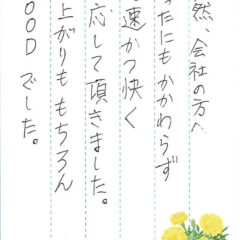 然、会社の方へ
ったにもかかわらず
速かつ快く
応して頂きました。
上がりももちろん
OODでした。